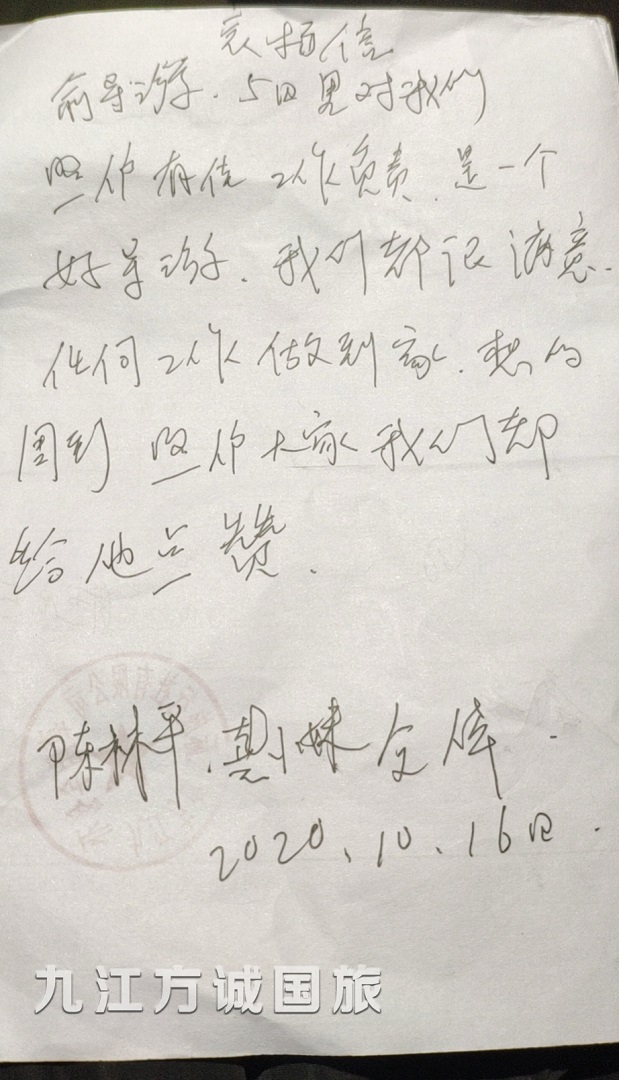 表扬信
俞导游.5日里对我们
照倠有佳 工作负责.是一个
好导游.我们都很满意.
任何工作做到家.想的
周到 照倠大家我们都
给他点赞.
陈林平. 妹全体.
2020、10、16日.
九江方诚国旅